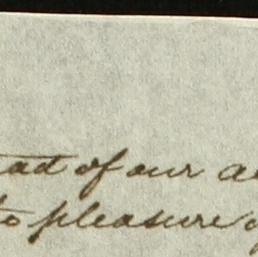 ad of our a
to pleasure